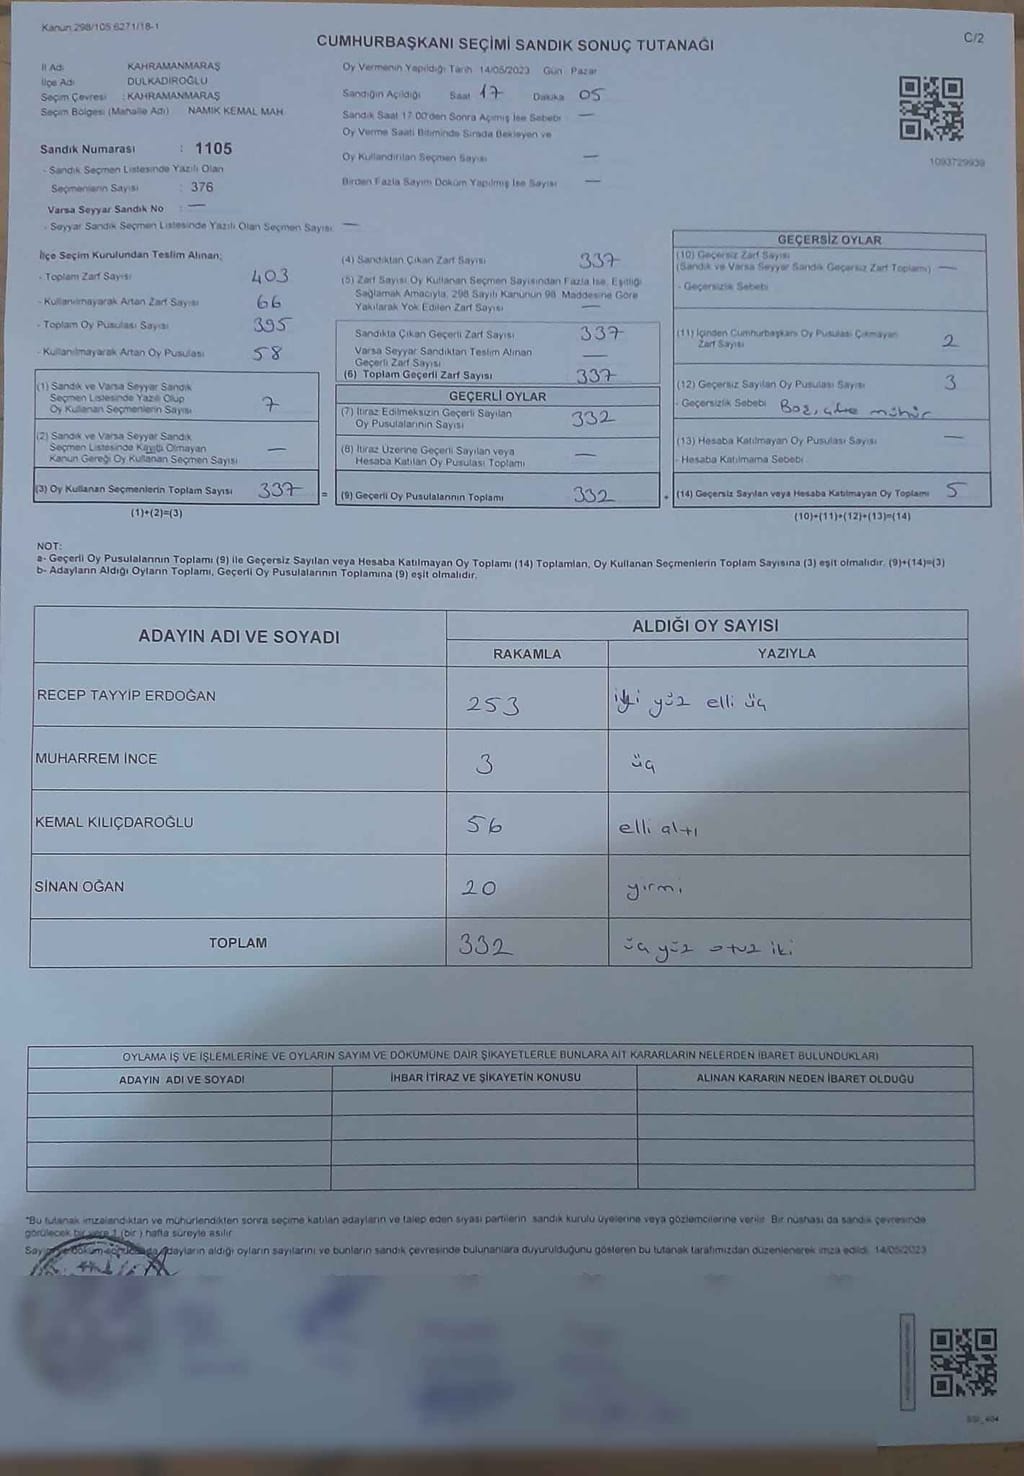 Kanun 298/105 6271/18-1
C/2
CUMHURBAŞKANI SEÇİMİ SANDIK SONUÇ TUTANAĞI
İl Adı KAHRAMANMARAŞ
İlçe Adı DULKADİROĞLU
Seçim Çevresi : KAHRAMANMARAŞ
Seçim Bölgesi (Mahalle Adı) NAMIK KEMAL MAH.
Sandık Numarası : 1105
- Sandık Seçmen Listesinde Yazılı Olan
Seçmenlerin Sayısı : 376
Varsa Seyyar Sandık No : —
- Seyyar Sandık Seçmen Listesinde Yazılı Olan Seçmen Sayısı —
Oy Vermenin Yapıldığı Tarih 14/05/2023 Gün Pazar
Sandığın Açıldığı Saat 17 Dakika 05
Sandık Saat 17.00'den Sonra Açımış İse Sebebi —
Oy Verme Saati Bitiminde Sırada Bekleyen ve
Oy Kullandırılan Seçmen Sayısı —
Birden Fazla Sayım Döküm Yapılmış İse Sayısı —
1093729939
İlçe Seçim Kurulundan Teslim Alınan;
- Toplam Zarf Sayısı 403
- Kullanılmayarak Artan Zarf Sayısı 66
- Toplam Oy Pusulası Sayısı 395
- Kullanılmayarak Artan Oy Pusulası 58
(1) Sandık ve Varsa Seyyar Sandık
Seçmen Listesinde Yazılı Olup
Oy Kullanan Seçmenlerin Sayısı 7
(2) Sandık ve Varsa Seyyar Sandık
Seçmen Listesinde Kayıtlı Olmayan
Kanun Gereği Oy Kullanan Seçmen Sayısı —
(3) Oy Kullanan Seçmenlerin Toplam Sayısı 337 =
(1)+(2)=(3)
(4) Sandıktan Çıkan Zarf Sayısı 337
(5) Zarf Sayısı Oy Kullanan Seçmen Sayısından Fazla İse, Eşitliği
Sağlamak Amacıyla, 298 Sayılı Kanunun 98. Maddesine Göre
Yakılarak Yok Edilen Zarf Sayısı —
Sandıkta Çıkan Geçerli Zarf Sayısı 337
Varsa Seyyar Sandıktan Teslim Alınan
Geçerli Zarf Sayısı —
(6) Toplam Geçerli Zarf Sayısı 337
GEÇERLİ OYLAR
(7) İtiraz Edilmeksizin Geçerli Sayılan
Oy Pusulalarının Sayısı 332
(8) İtiraz Üzerine Geçerli Sayılan veya
Hesaba Katılan Oy Pusulası Toplamı —
(9) Geçerli Oy Pusulalarının Toplamı 332 +
GEÇERSİZ OYLAR
(10) Geçersiz Zarf Sayısı
(Sandık ve Varsa Seyyar Sandık Geçersiz Zarf Toplamı) —
- Geçersizlik Sebebi
(11) İçinden Cumhurbaşkanı Oy Pusulası Çıkmayan
Zarf Sayısı 2
(12) Geçersiz Sayılan Oy Pusulası Sayısı 3
- Geçersizlik Sebebi Boş, çift mühür
(13) Hesaba Katılmayan Oy Pusulası Sayısı —
- Hesaba Katılmama Sebebi
(14) Geçersiz Sayılan veya Hesaba Katılmayan Oy Toplamı 5
(10)+(11)+(12)+(13)=(14)
NOT:
a- Geçerli Oy Pusulalarının Toplamı (9) ile Geçersiz Sayılan veya Hesaba Katılmayan Oy Toplamı (14) Toplamları, Oy Kullanan Seçmenlerin Toplam Sayısına (3) eşit olmalıdır. (9)+(14)=(3)
b- Adayların Aldığı Oyların Toplamı, Geçerli Oy Pusulalarının Toplamına (9) eşit olmalıdır.
ADAYIN ADI VE SOYADI ALDIĞI OY SAYISI
RAKAMLA YAZIYLA
RECEP TAYYİP ERDOĞAN 253 iki yüz elli üç
MUHARREM İNCE 3 üç
KEMAL KILIÇDAROĞLU 56 elli altı
SİNAN OĞAN 20 yirmi
TOPLAM 332 üç yüz otuz iki
OYLAMA İŞ VE İŞLEMLERİNE VE OYLARIN SAYIM VE DÖKÜMÜNE DAİR ŞİKAYETLERLE BUNLARA AİT KARARLARIN NELERDEN İBARET BULUNDUKLARI
ADAYIN ADI VE SOYADI İHBAR İTİRAZ VE ŞİKAYETİN KONUSU ALINAN KARARIN NEDEN İBARET OLDUĞU
*Bu tutanak imzalandıktan ve mühürlendikten sonra seçime katılan adayların ve talep eden siyasi partilerin sandık kurulu üyelerine veya gözlemcilerine verilir. Bir nüshası da sandık çevresinde
görülecek bir yere 1 (bir) hafta süreyle asılır.
adayların aldığı oyların sayılarını ve bunların sandık çevresinde bulunanlara duyurulduğunu gösteren bu tutanak tarafımızdan düzenlenerek imza edildi. 14/05/2023